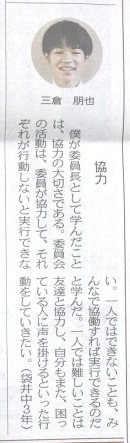 三倉 朋也
協力
僕が委員長として学んだこと
は、協力の大切さである。委員会
の活動は、委員が協力して、それ
ぞれが行動しないと実行できな
い。一人ではできないことも、み
んなで協働すれば実行できるのだ
と学んだ。一人では難しいことは
友達と協力し、自分もまた、困っ
ている人に声を掛けるといった行
動をしていきたい。（袋井中3年）